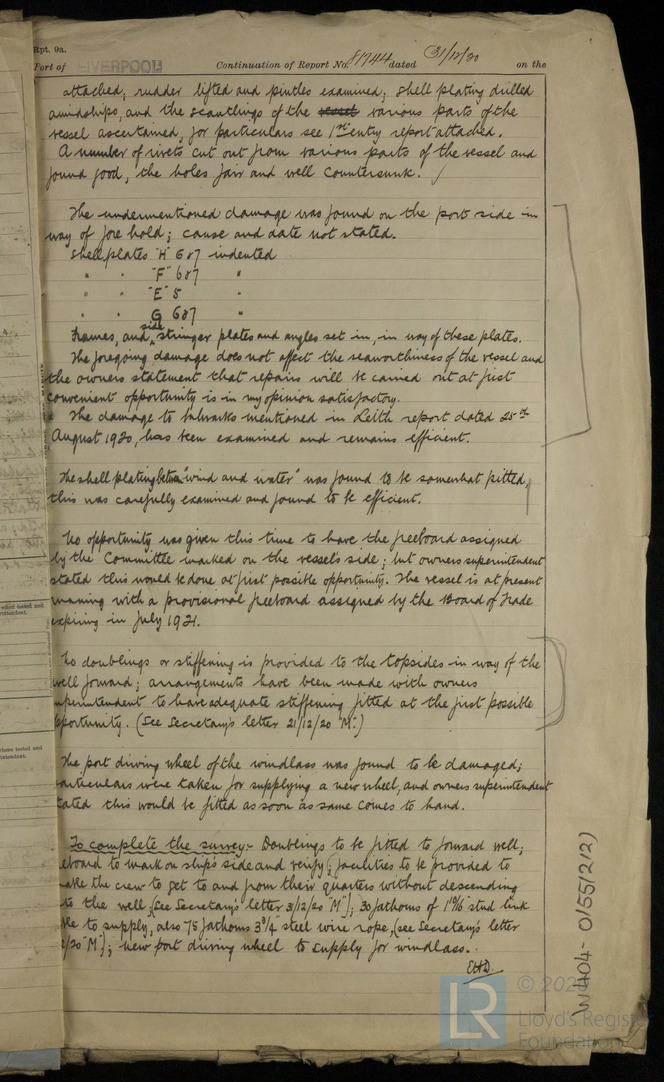 Rpt. 9a.
Port of LIVERPOOL Continuation of Report No. 81944 dated 31/12/20 on the
attached; rudder lifted and pintles examined; shell plating drilled
amidships, and the scantlings of the vessel various parts of the
vessel ascertained, for particulars see 1st entry report attached.
A number of rivets cut out from various parts of the vessel and
found good, the holes fair and well countersunk.
The undermentioned damage was found on the port side in
way of fore hold; cause and date not stated.
Shell plates "H" 6&7 indented
" " "F" 6&7 "
" " "E" 5 "
" " G 6&7 "
Frames, and side stringer plates and angles set in, in way of these plates.
The foregoing damage does not affect the seaworthiness of the vessel and
the owners statement that repairs will be carried out at first
convenient opportunity is in my opinion satisfactory.
The damage to bulwarks mentioned in Leith report dated 25th
August 1920, has been examined and remains efficient.
The shell plating between "wind and water" was found to be somewhat pitted,
this was carefully examined and found to be efficient.
No opportunity was given this time to have the freeboard assigned
by the Committee marked on the vessel's side; but owners superintendent
stated this would be done at first possible opportunity. The vessel is at present
running with a provisional freeboard assigned by the Board of Trade
expiring in July 1921.
No doublings or stiffening is provided to the topsides in way of the
well forward; arrangements have been made with owners
superintendent to have adequate stiffening fitted at the first possible
opportunity. (See Secretary's letter 21/12/20 "M".)
The port driving wheel of the windlass was found to be damaged;
particulars were taken for supplying a new wheel, and owners superintendent
stated this would be fitted as soon as same comes to hand.
To complete the survey:- Doublings to be fitted to forward well;
freeboard to mark on ship's side and verify; facilities to be provided to
make the crew to get to and from their quarters without descending
to the well, (see Secretary's letter 3/12/20 "M"); 30 fathoms of 1 9/16" stud link
to supply, also 75 fathoms 3 3/4" steel wire rope, (see Secretary's letter
/20 "M"); new port driving wheel to supply for windlass.
EHD.
W404-0155(2/2)
LR
© 202
Lloyd's Register
Foundation